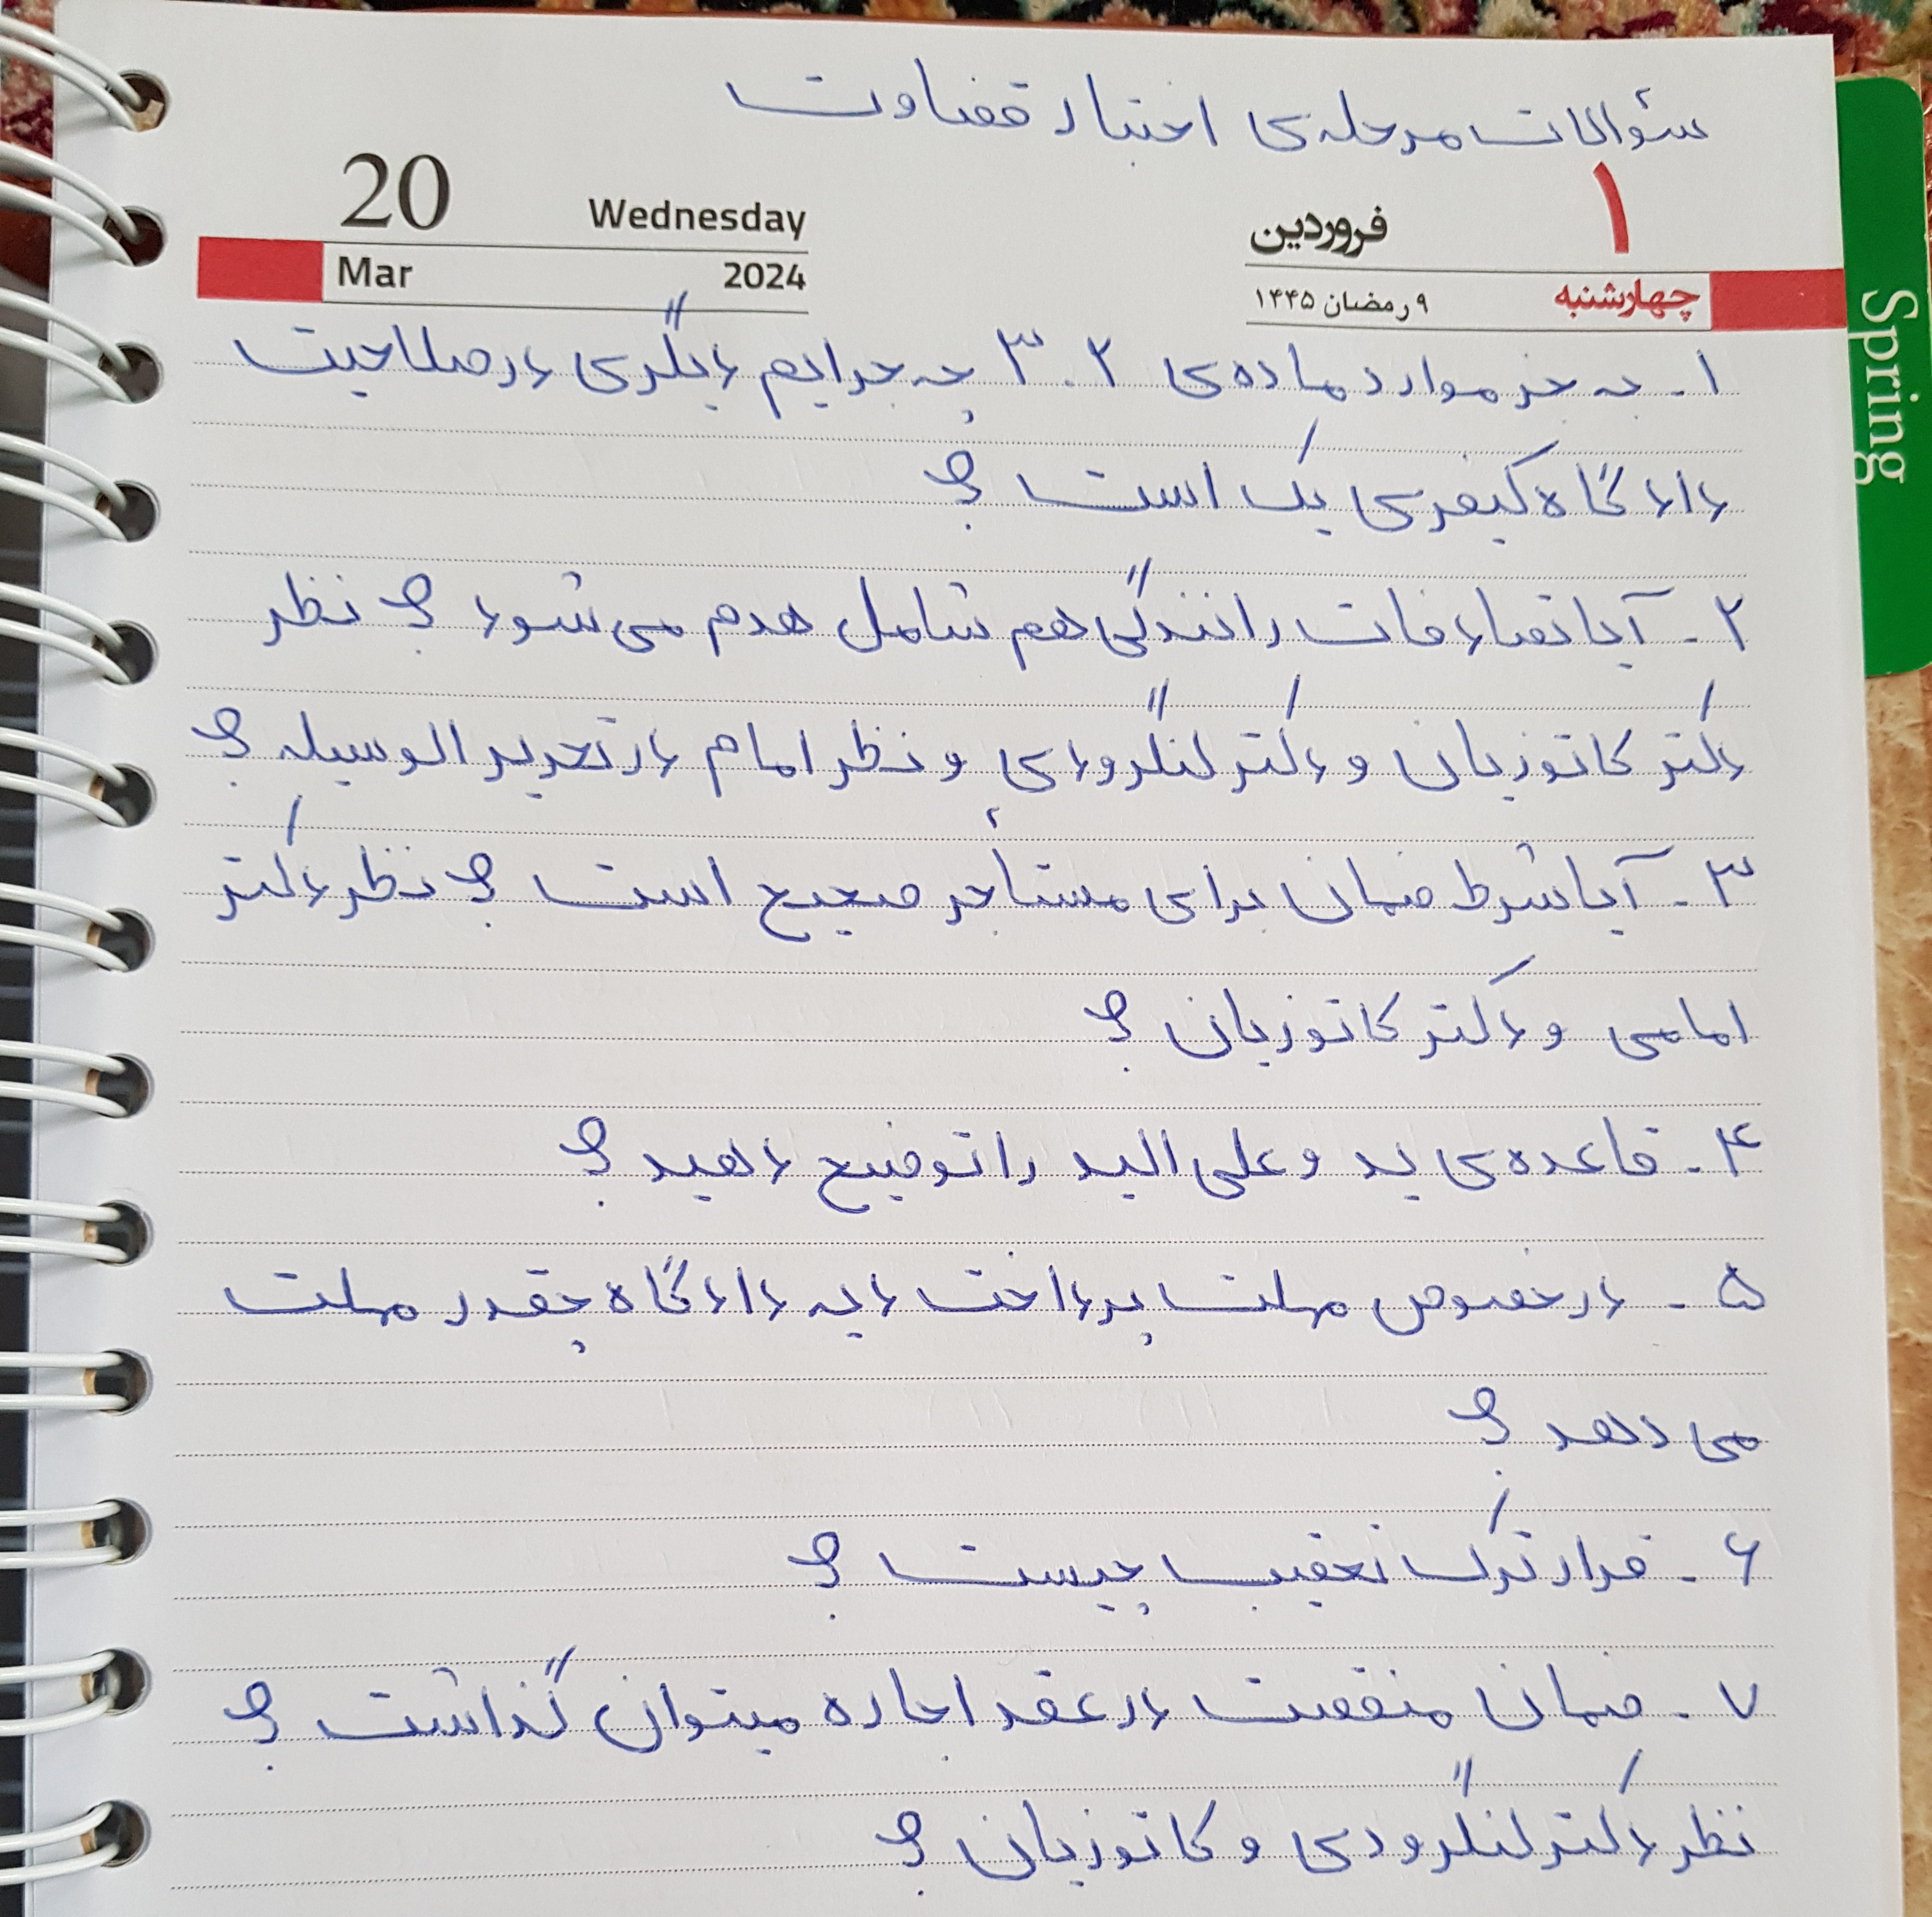 سئوالات مرحله‌ی اختبار قضاوت
20 Wednesday
Mar 2024
۱ فروردین
چهارشنبه ۹ رمضان ۱۴۴۵
Spring
۱ـ به جز موارد ماده‌ی ۳۰۲ چه جرایم دیگری در صلاحیت
دادگاه کیفری یک است ؟
۲ـ آیا تصادفات رانندگی هم شامل هدم می‌شود ؟ نظر
دکتر کاتوزیان و دکتر لنگرودی و نظر امام در تحریر الوسیله ؟
۳ـ آیا شرط ضمان برای مستأجر صحیح است ؟ نظر دکتر
امامی و دکتر کاتوزیان ؟
۴ـ قاعده‌ی ید و علی الید را توضیح دهید ؟
۵ـ در خصوص مهلت پرداخت دیه دادگاه چقدر مهلت
می دهد ؟
۶ـ قرار ترک تعقیب چیست ؟
۷ـ ضمان منقصت در عقد اجاره میتوان گذاشت ؟
نظر دکتر لنگرودی و کاتوزیان ؟